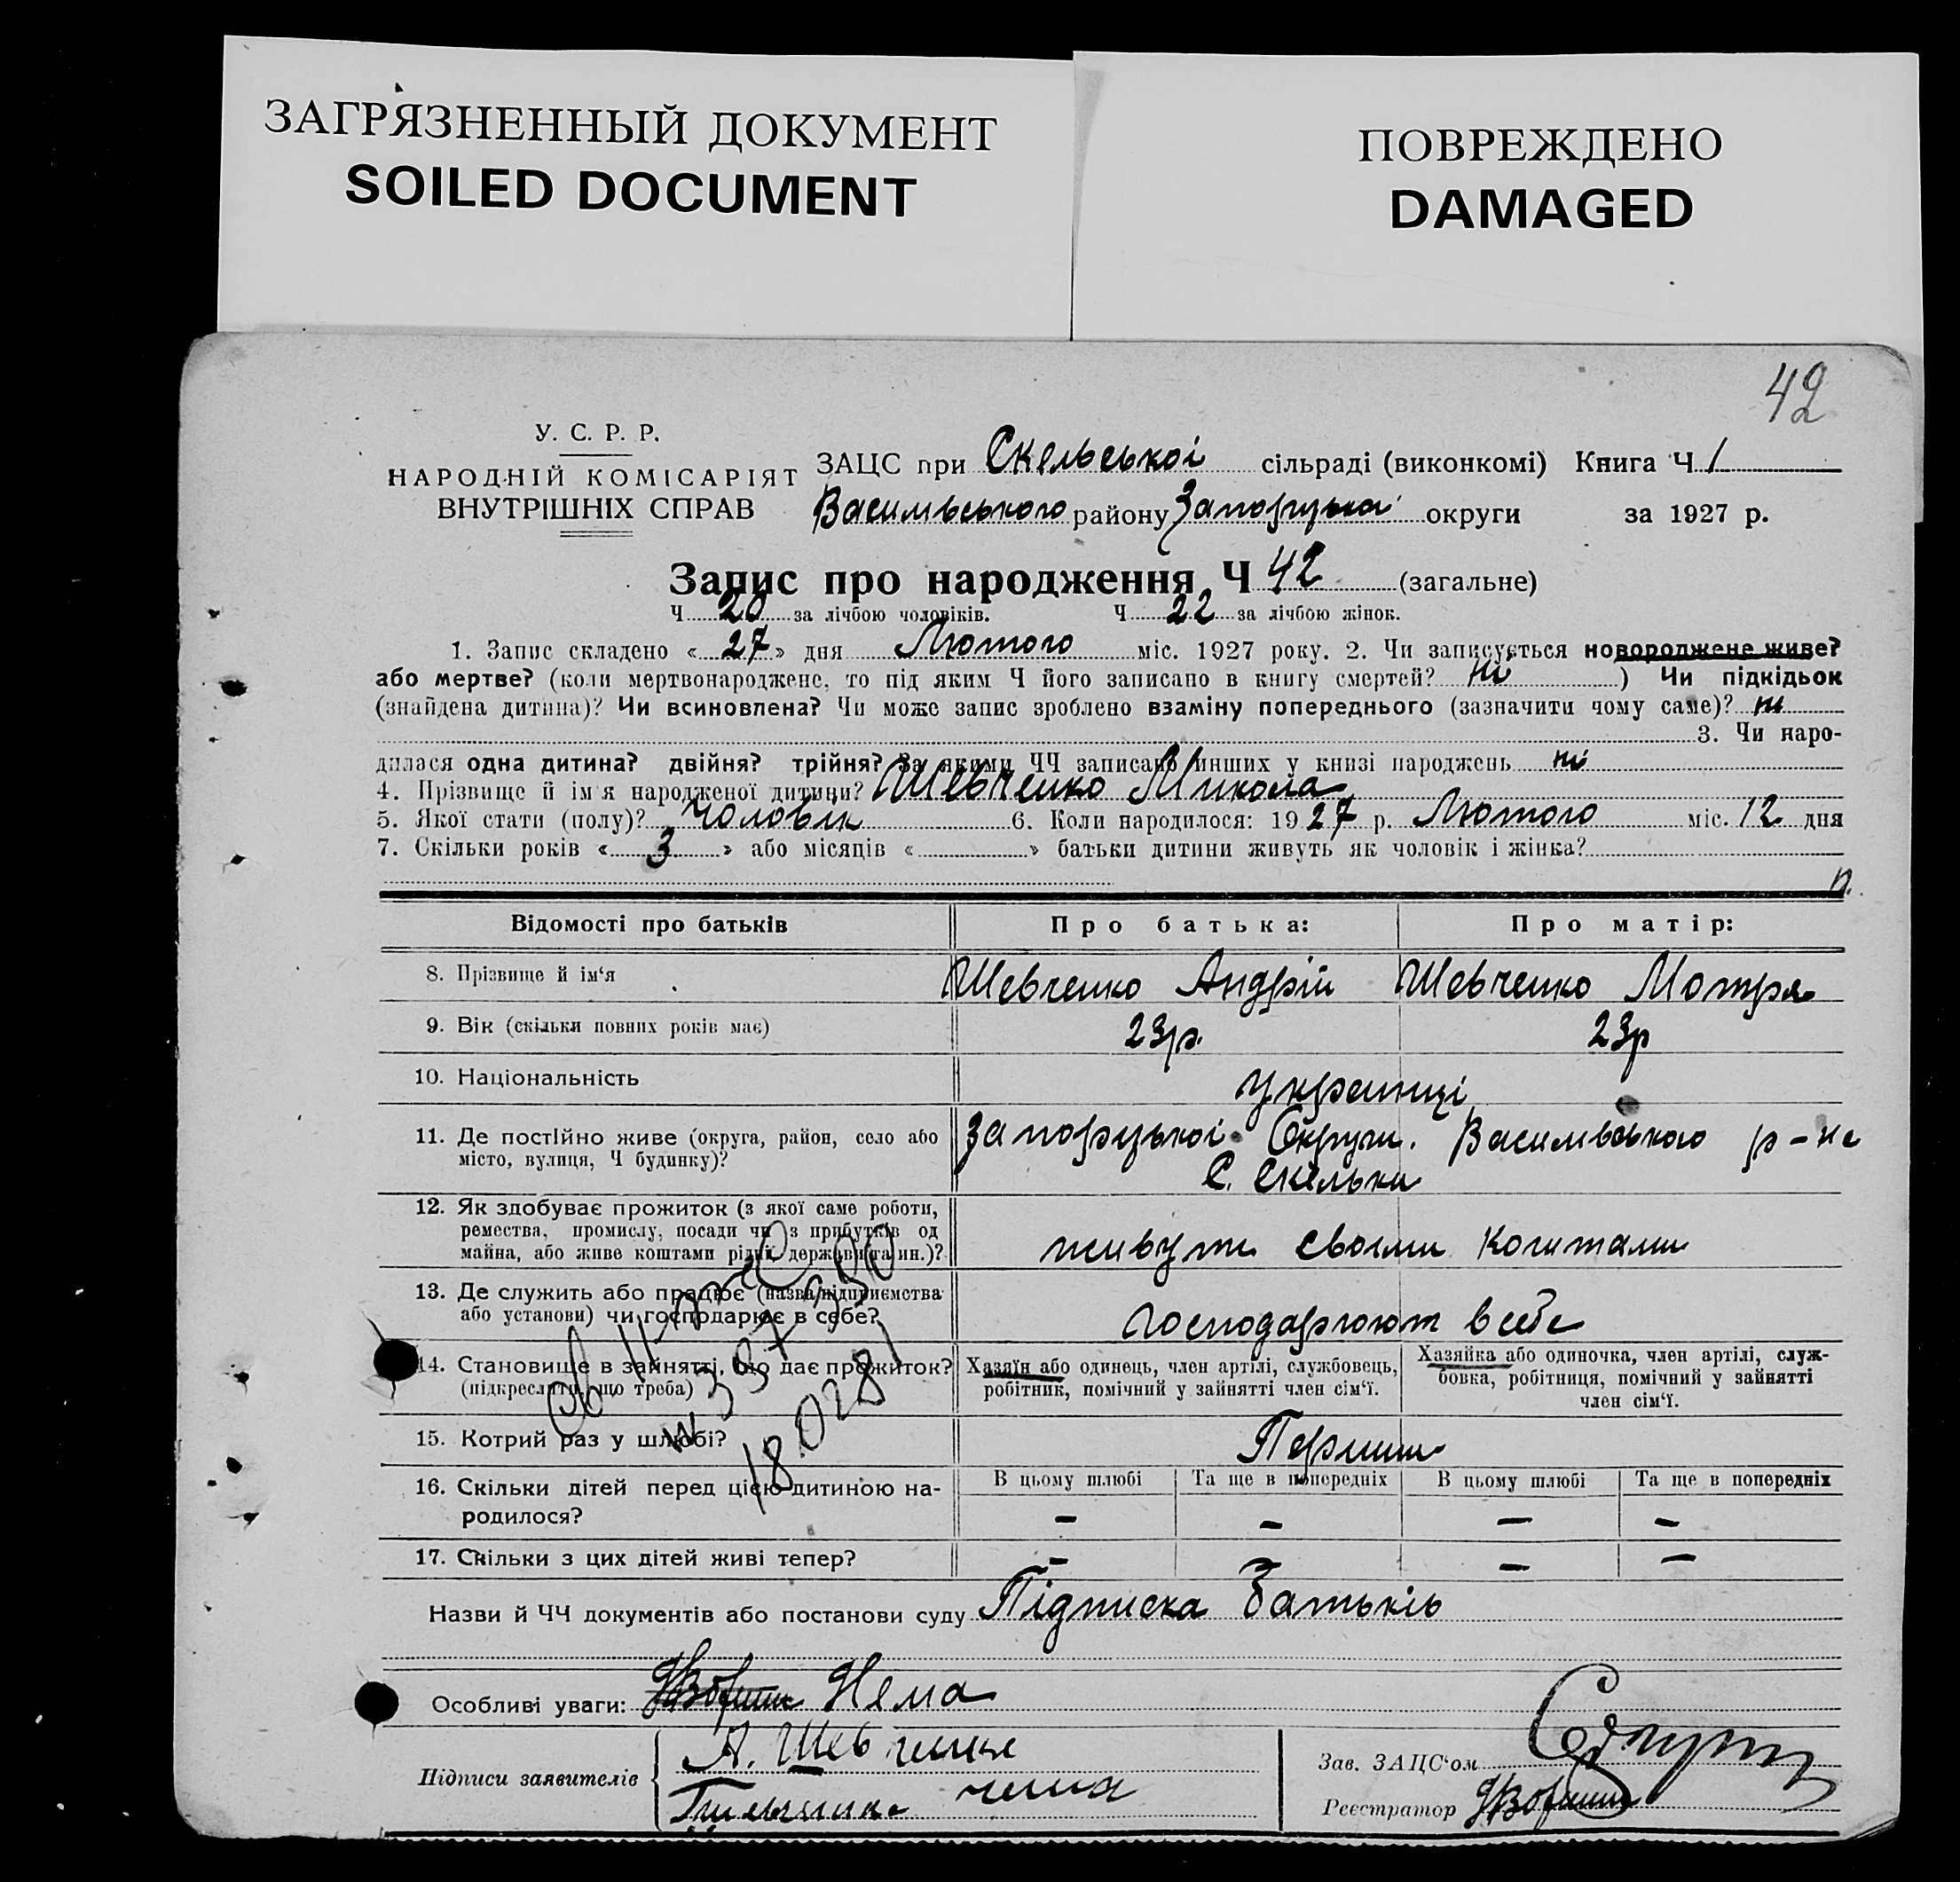 ЗАГРЯЗНЕННЫЙ ДОКУМЕНТ
SOILED DOCUMENT
ПОВРЕЖДЕНО
DAMAGED
42
У. С. Р. Р.
НАРОДНІЙ КОМІСАРІЯТ
ВНУТРІШНІХ СПРАВ
ЗАЦС при Скельської сільраді (виконкомі) Книга Ч 1
Василівського району Запорізької округи за 1927 р.
Запис про народження Ч 42 (загальне)
Ч 20 за лічбою чоловіків. Ч 22 за лічбою жінок.
1. Запис складено « 27 » дня Лютого міс. 1927 року. 2. Чи записується новороджене живе?
або мертве? (коли мертвонароджене, то під яким Ч його записано в книгу смертей? ні ) Чи підкідьок
(знайдена дитина)? Чи всиновлена? Чи може запис зроблено взаміну попереднього (зазначити чому саме)? ні
3. Чи наро-
дилася одна дитина? двійня? трійня? За якими ЧЧ записано инших у книзі народжень ні
4. Прізвище й ім'я народженої дитини? Шевченко Микола
5. Якої стати (полу)? Чоловік 6. Коли народилося: 1927 р. Лютого міс. 12 дня
7. Скільки років « 3 » або місяців « » батьки дитини живуть як чоловік і жінка?
Відомості про батьків Про батька: Про матір:
8. Прізвище й ім'я Шевченко Андрій Шевченко Мотря
9. Вік (скільки повних років має) 23р. 23р
10. Національність Українці
11. Де постійно живе (округа, район, село або Запорізької Округи. Василівського р-на
місто, вулиця, Ч будинку)? С. Скельки
12. Як здобуває прожиток (з якої саме роботи,
ремества, промислу, посади чи з прибутків од
майна, або живе коштами рідні, держави та ин.)? живуть своїми коштами
13. Де служить або працює (назва підприємства
або установи) чи господарює в себе? господарюют в себе
14. Становище в зайнятті, що дає прожиток? Хазяїн або одинець, член артілі, службовець, Хазяйка або одиночка, член артілі, служ-
(підкреслити, що треба) робітник, помічний у зайнятті член сім'ї. бовка, робітниця, помічний у зайнятті
член сім'ї.
15. Котрий раз у шлюбі? Перший
16. Скільки дітей перед цією дитиною на- В цьому шлюбі Та ще в попередніх В цьому шлюбі Та ще в попередніх
родилося? – – – –
17. Скільки з цих дітей живі тепер? – – –
Назви й ЧЧ документів або постанови суду Підписка Батьків
Особливі уваги: Нема
Підписи заявителів А. Шевченко
Зав. ЗАЦС'ом
Реєстратор